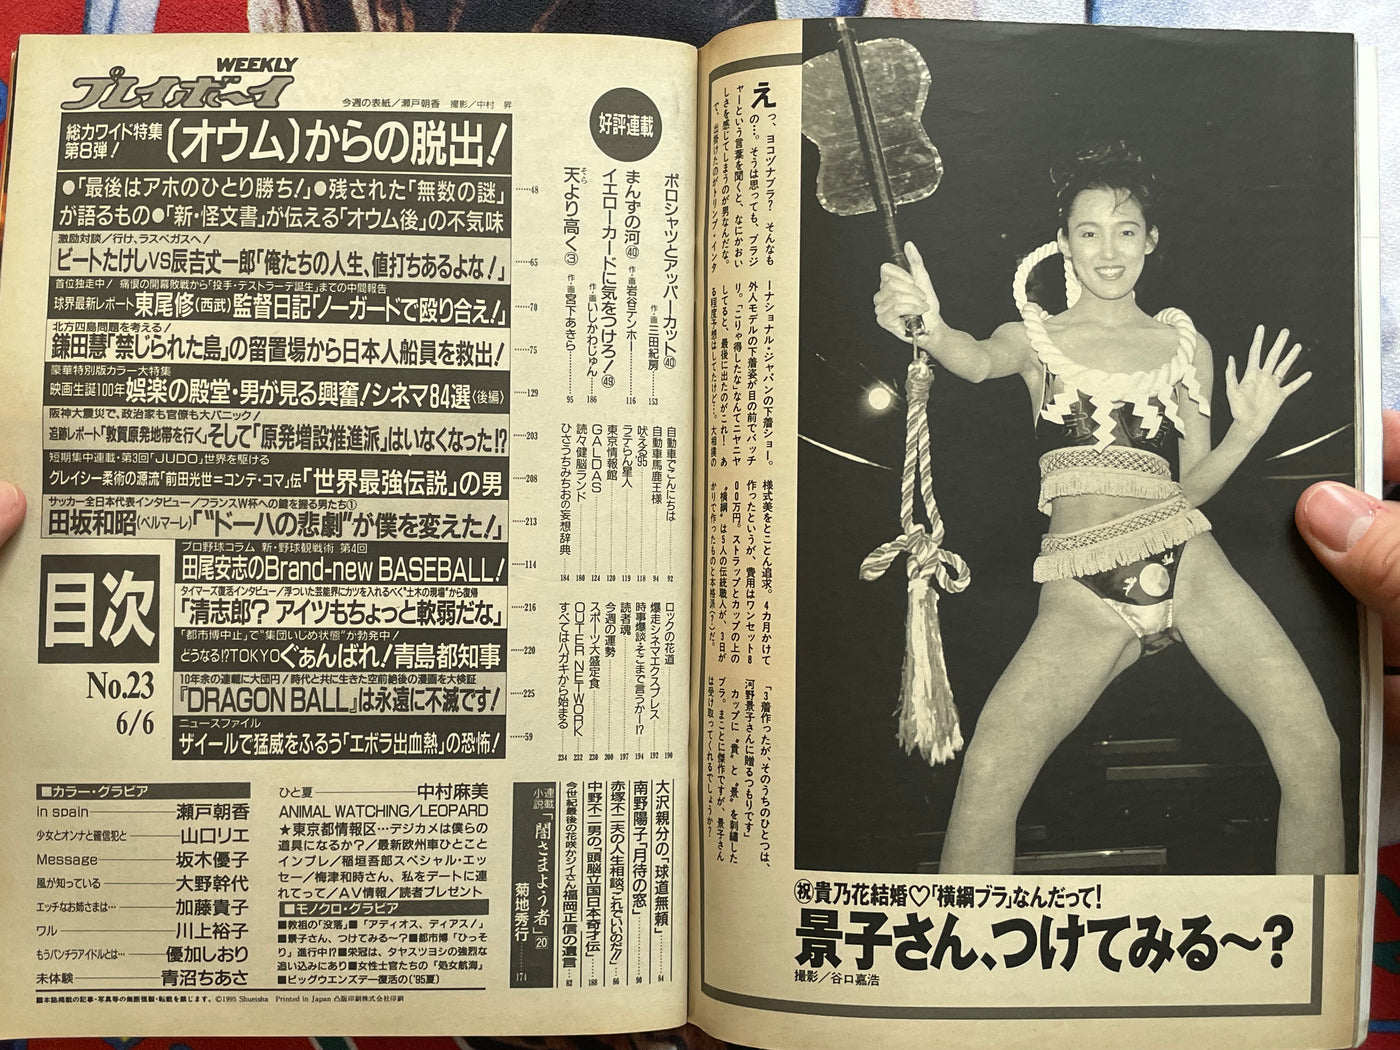 WEEKLY
プレイボーイ
今週の表紙／瀬戸朝香 撮影／中村 昇
総力ワイド特集
第8弾!
〔オウム〕からの脱出!
●「最後はアホのひとり勝ち!」●残された「無数の謎」
が語るもの●「新・怪文書」が伝える「オウム後」の不気味
……48
激励対談／行け、ラスベガスへ!
ビートたけしVS辰吉丈一郎「俺たちの人生、値打ちあるよな!」
……65
首位独走中! 痛恨の開幕敗戦から「投手・デストラーデ誕生」までの中間報告
球界最新レポート東尾修(西武)監督日記「ノーガードで殴り合え!」
……70
北方四島問題を考える!
鎌田慧「禁じられた島」の留置場から日本人船員を救出!
……75
豪華特別版カラー大特集
映画生誕100年娯楽の殿堂・男が見る興奮!シネマ84選〈後編〉
……129
阪神大震災で、政治家も官僚も大パニック!
追跡レポート「敦賀原発地帯を行く」そして「原発増設推進派」はいなくなった!?
……203
短期集中連載・第3回「JUDO」世界を駆ける
グレイシー柔術の源流「前田光世=コンデ・コマ」伝「世界最強伝説」の男
……208
サッカー全日本代表インタビュー／フランスW杯への鍵を握る男たち①
田坂和昭(ベルマーレ)「“ドーハの悲劇”が僕を変えた!」
……213
プロ野球コラム 新・野球観戦術 第4回
田尾安志のBrand-new BASEBALL!
……114
タイマーズ復活インタビュー／浮ついた芸能界にカツを入れるべく“土木の現場”から復帰
「清志郎? アイツもちょっと軟弱だな」
……216
「都市博中止」で“集団いじめ状態”か勃発中!
どうなる!?TOKYOぐぁんばれ!青島都知事
……220
10年余の連載に大団円!時代と共に生きた空前絶後の漫画を大検証
『DRAGON BALL』は永遠に不滅です!
……225
ニュースファイル
ザイールで猛威をふるう「エボラ出血熱」の恐怖!
……59
目次
No.23
6/6
好評連載
ポロシャツとアッパーカット㊵ 作・画 三田紀房 153
まんずの河㊵ 作・画 岩谷テンホー 116
イエローカードに気をつけろ!㊾ 作・画 いしかわじゅん 186
天より高く③ 作・画 宮下あきら 95
そら
自動車でこんにちは 92
自動車馬鹿王様 94
吠える'95 118
ラテらん星人 119
東京情報館 120
GALDAS 124
読々健脳ランド 180
ひさうちみちおの妄想辞典 184
ロックの花道 190
爆走シネマエクスプレス 192
時事爆談・そこまで言うかー!? 194
読者魂 197
今週の運勢 200
スポーツ大盛定食 230
OUTER NETWORK 232
すべてはハガキから始まる 234
大沢親分の「球道無頼」 84
南野陽子「月待の窓」 90
赤塚不二夫の人生相談「これでいいのだ!!」 86
中野不二男の「頭脳立国日本奇才伝」 188
今世紀最後の花咲かジイさん福岡正信の遺言 82
連載小説「闇さまよう者」20
菊地秀行 174
■カラー・グラビア
in spain 瀬戸朝香
少女とオンナと確信犯と 山口リエ
Message 坂木優子
風が知っている 大野幹代
エッチなお姉さまは… 加藤貴子
ワル 川上裕子
もうパンチラアイドルとは… 優加しおり
未体験 青沼ちあさ
ひと夏 中村麻美
ANIMAL WATCHING/LEOPARD
★東京都情報区…デジカメは僕らの
道具になるか?／最新欧州車ひとこと
インプレ／稲垣吾郎スペシャル・エッ
セー／梅津和時さん、私をデートに連
れてって／AV情報／読者プレゼント
■モノクロ・グラビア
■教祖の「没落」■「アディオス、ディアス!」
■景子さん、つけてみる〜?■都市博「ひっそ
り」進行中!?■栄冠は、タヤスツヨシの強烈な
追い込みにあり■女性士官たちの「処女航海」
■ビッグウエンズデー復活の('95夏)
■本誌掲載の記事・写真等の無断複製・転載を禁じます。©1995 Shueisha Printed in Japan 凸版印刷株式会社印刷
えっ、ヨコヅナブラ? そんなも
の…。そうは思っても、ブラジ
ャーという言葉を聞くと、なにかおい
しさを感じてしまうのが男なんだな。
で、出掛けたのがトリンプ・インタ
ーナショナル・ジャパンの下着ショー。
外人モデルの下着姿が目の前でバッチ
リ。「こりゃ得したな」なんてニヤニヤ
してると、最後に出たのがこれ! あ
る程度予想はしてたけど…。大相撲の
様式美をとことん追求。4カ月かけて
作ったというが、費用はワンセット8
00万円。ストラップとカップの上の
“横綱”は5人の伝統職人が、3日が
かりで作ったものと本格派(?)だ。
「3着作ったが、そのうちのひとつは、
河野景子さんに贈るつもりです」
カップに“貴”と“景”を刺繍した
ブラ。まことに傑作ですが、景子さん
は受け取ってくれるでしょうか?
㊗貴乃花結婚♡「横綱ブラ」なんだって!
景子さん、つけてみる〜?
撮影／谷口嘉浩